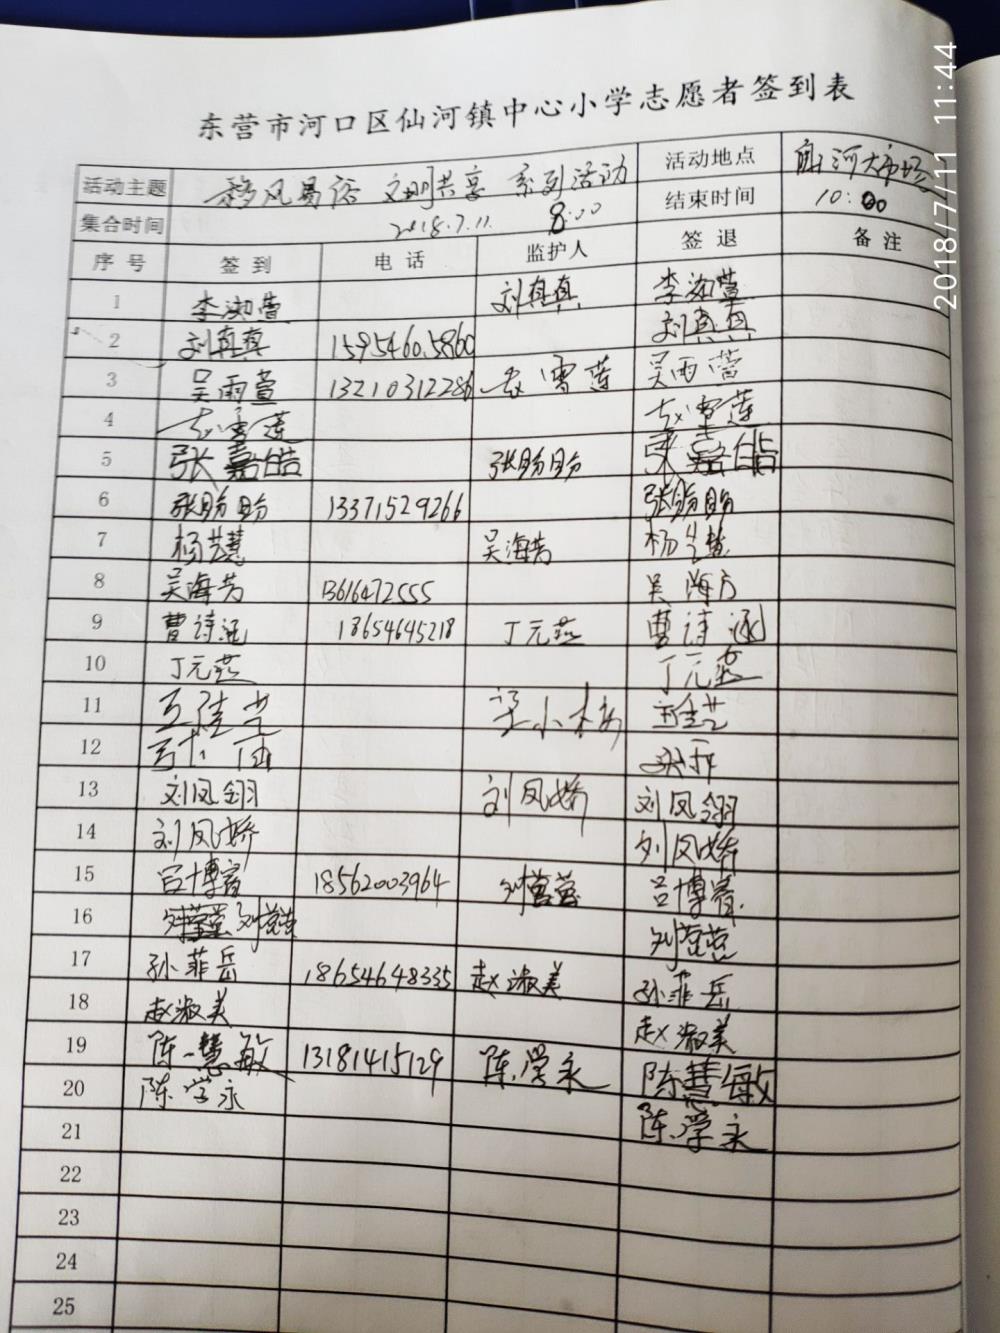 东营市河口区仙河镇中心小学志愿者签到表
活动主题 移风易俗 文明共享 系列活动 活动地点
集合时间 2018.7.11. 8:00 结束时间 10:00
序号 签到 电话 监护人 签退 备注
1 李淑萱 刘真真 李淑萱
2 刘真真 15954605860 刘真真
3 吴雨萱 13210312286 赵雪莲 吴雨萱
4 赵雪莲 赵雪莲
5 张嘉皓 张盼盼 张嘉皓
6 张盼盼 13371529266 张盼盼
7 杨艺慧 吴海芳 杨艺慧
8 吴海芳 13616472555 吴海芳
9 曹诗涵 18654645218 丁元燕 曹诗涵
10 丁元燕 丁元燕
11 王佳艺 梁小梅 王佳艺
12
13 刘凤翎 刘凤娇 刘凤翎
14 刘凤娇 刘凤娇
15 吕博睿 18562003964 刘莹莹 吕博睿
16 刘莹莹 刘莹莹
17 孙菲岳 18654648335 赵淑美 孙菲岳
18 赵淑美 赵淑美
19 陈慧敏 13181415129 陈学永 陈慧敏
20 陈学永
21 陈学永
22
23
24
25
2018/7/11 11:44